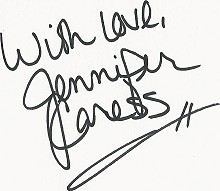 With love,
Jennifer
Caress